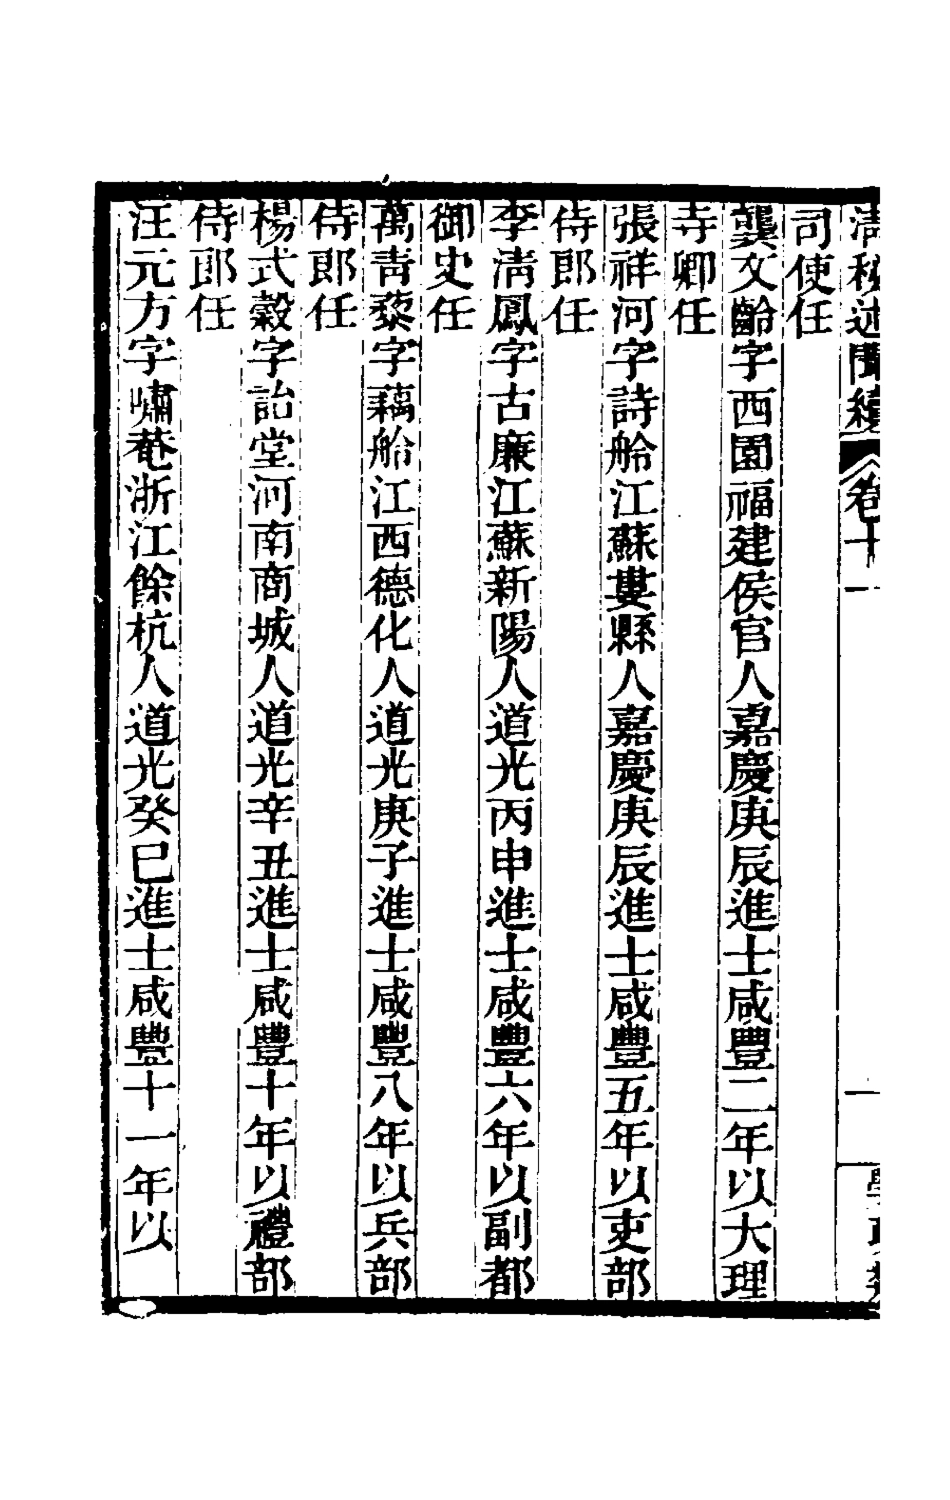 清秘述聞續 卷十 一 學政類
司使任
龔文齡字西園福建侯官人嘉慶庚辰進士咸豐二年以大理
寺卿任
張祥河字詩舲江蘇婁縣人嘉慶庚辰進士咸豐五年以吏部
侍郎任
李清鳳字古廉江蘇新陽人道光丙申進士咸豐六年以副都
御史任
萬青藜字藕舲江西德化人道光庚子進士咸豐八年以兵部
侍郎任
楊式穀字詒堂河南商城人道光辛丑進士咸豐十年以禮部
侍郎任
汪元方字嘯菴浙江餘杭人道光癸巳進士咸豐十一年以